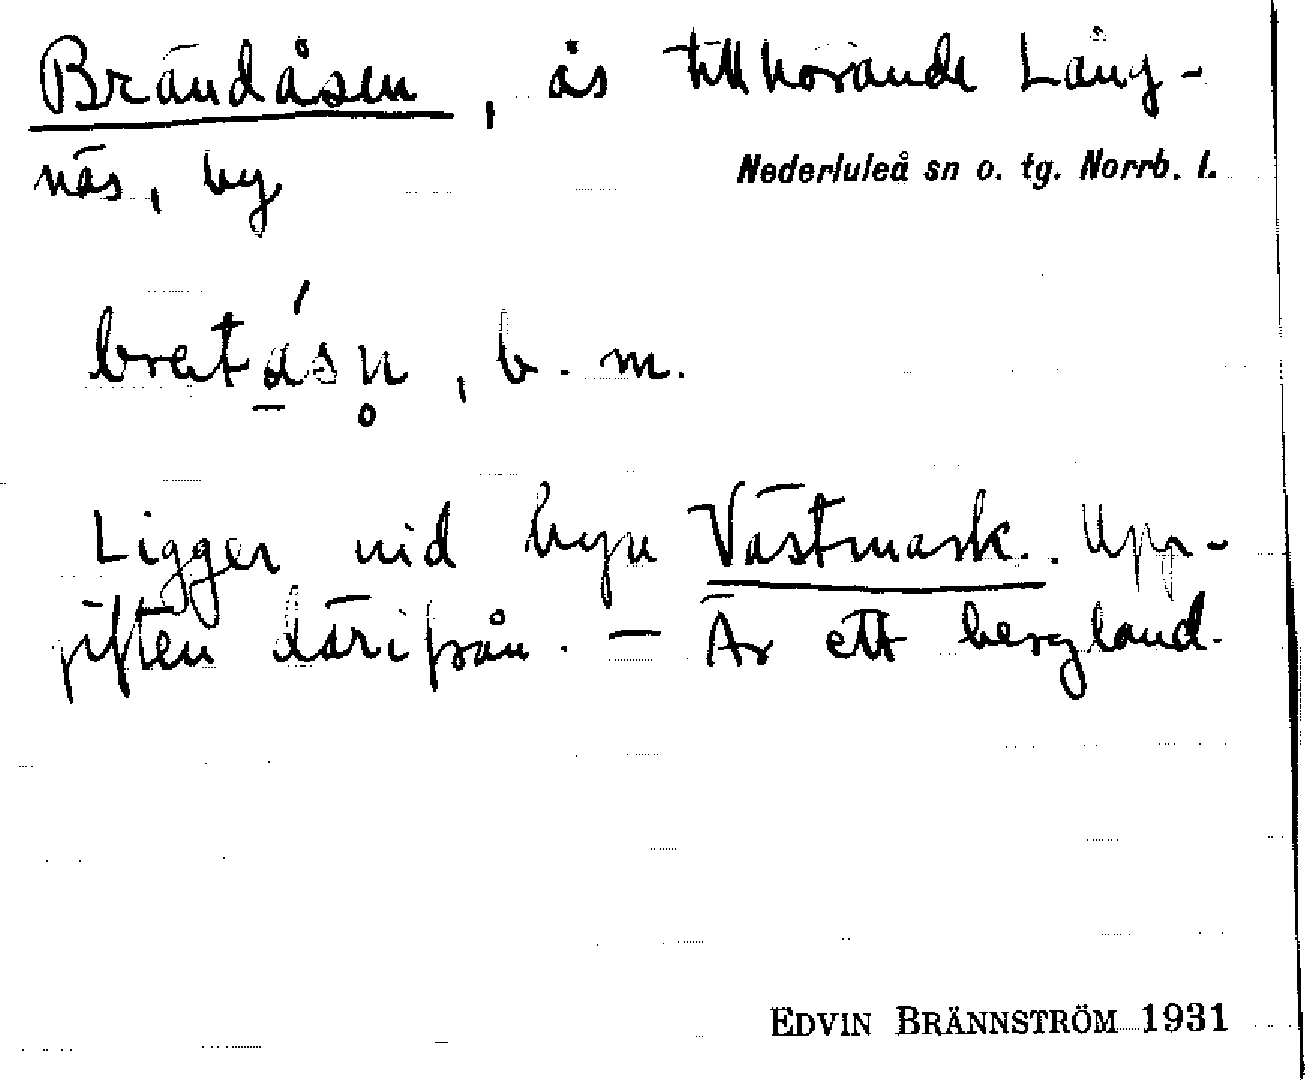 Brändåsen, ås tillhörande Lång-
näs, by
Nederluleå sn o. tg. Norrb. l.
b. m.
Ligger vid byn Västmark. Upp-
giften därifrån. — Är ett bergland.
EDVIN BRÄNNSTRÖM 1931